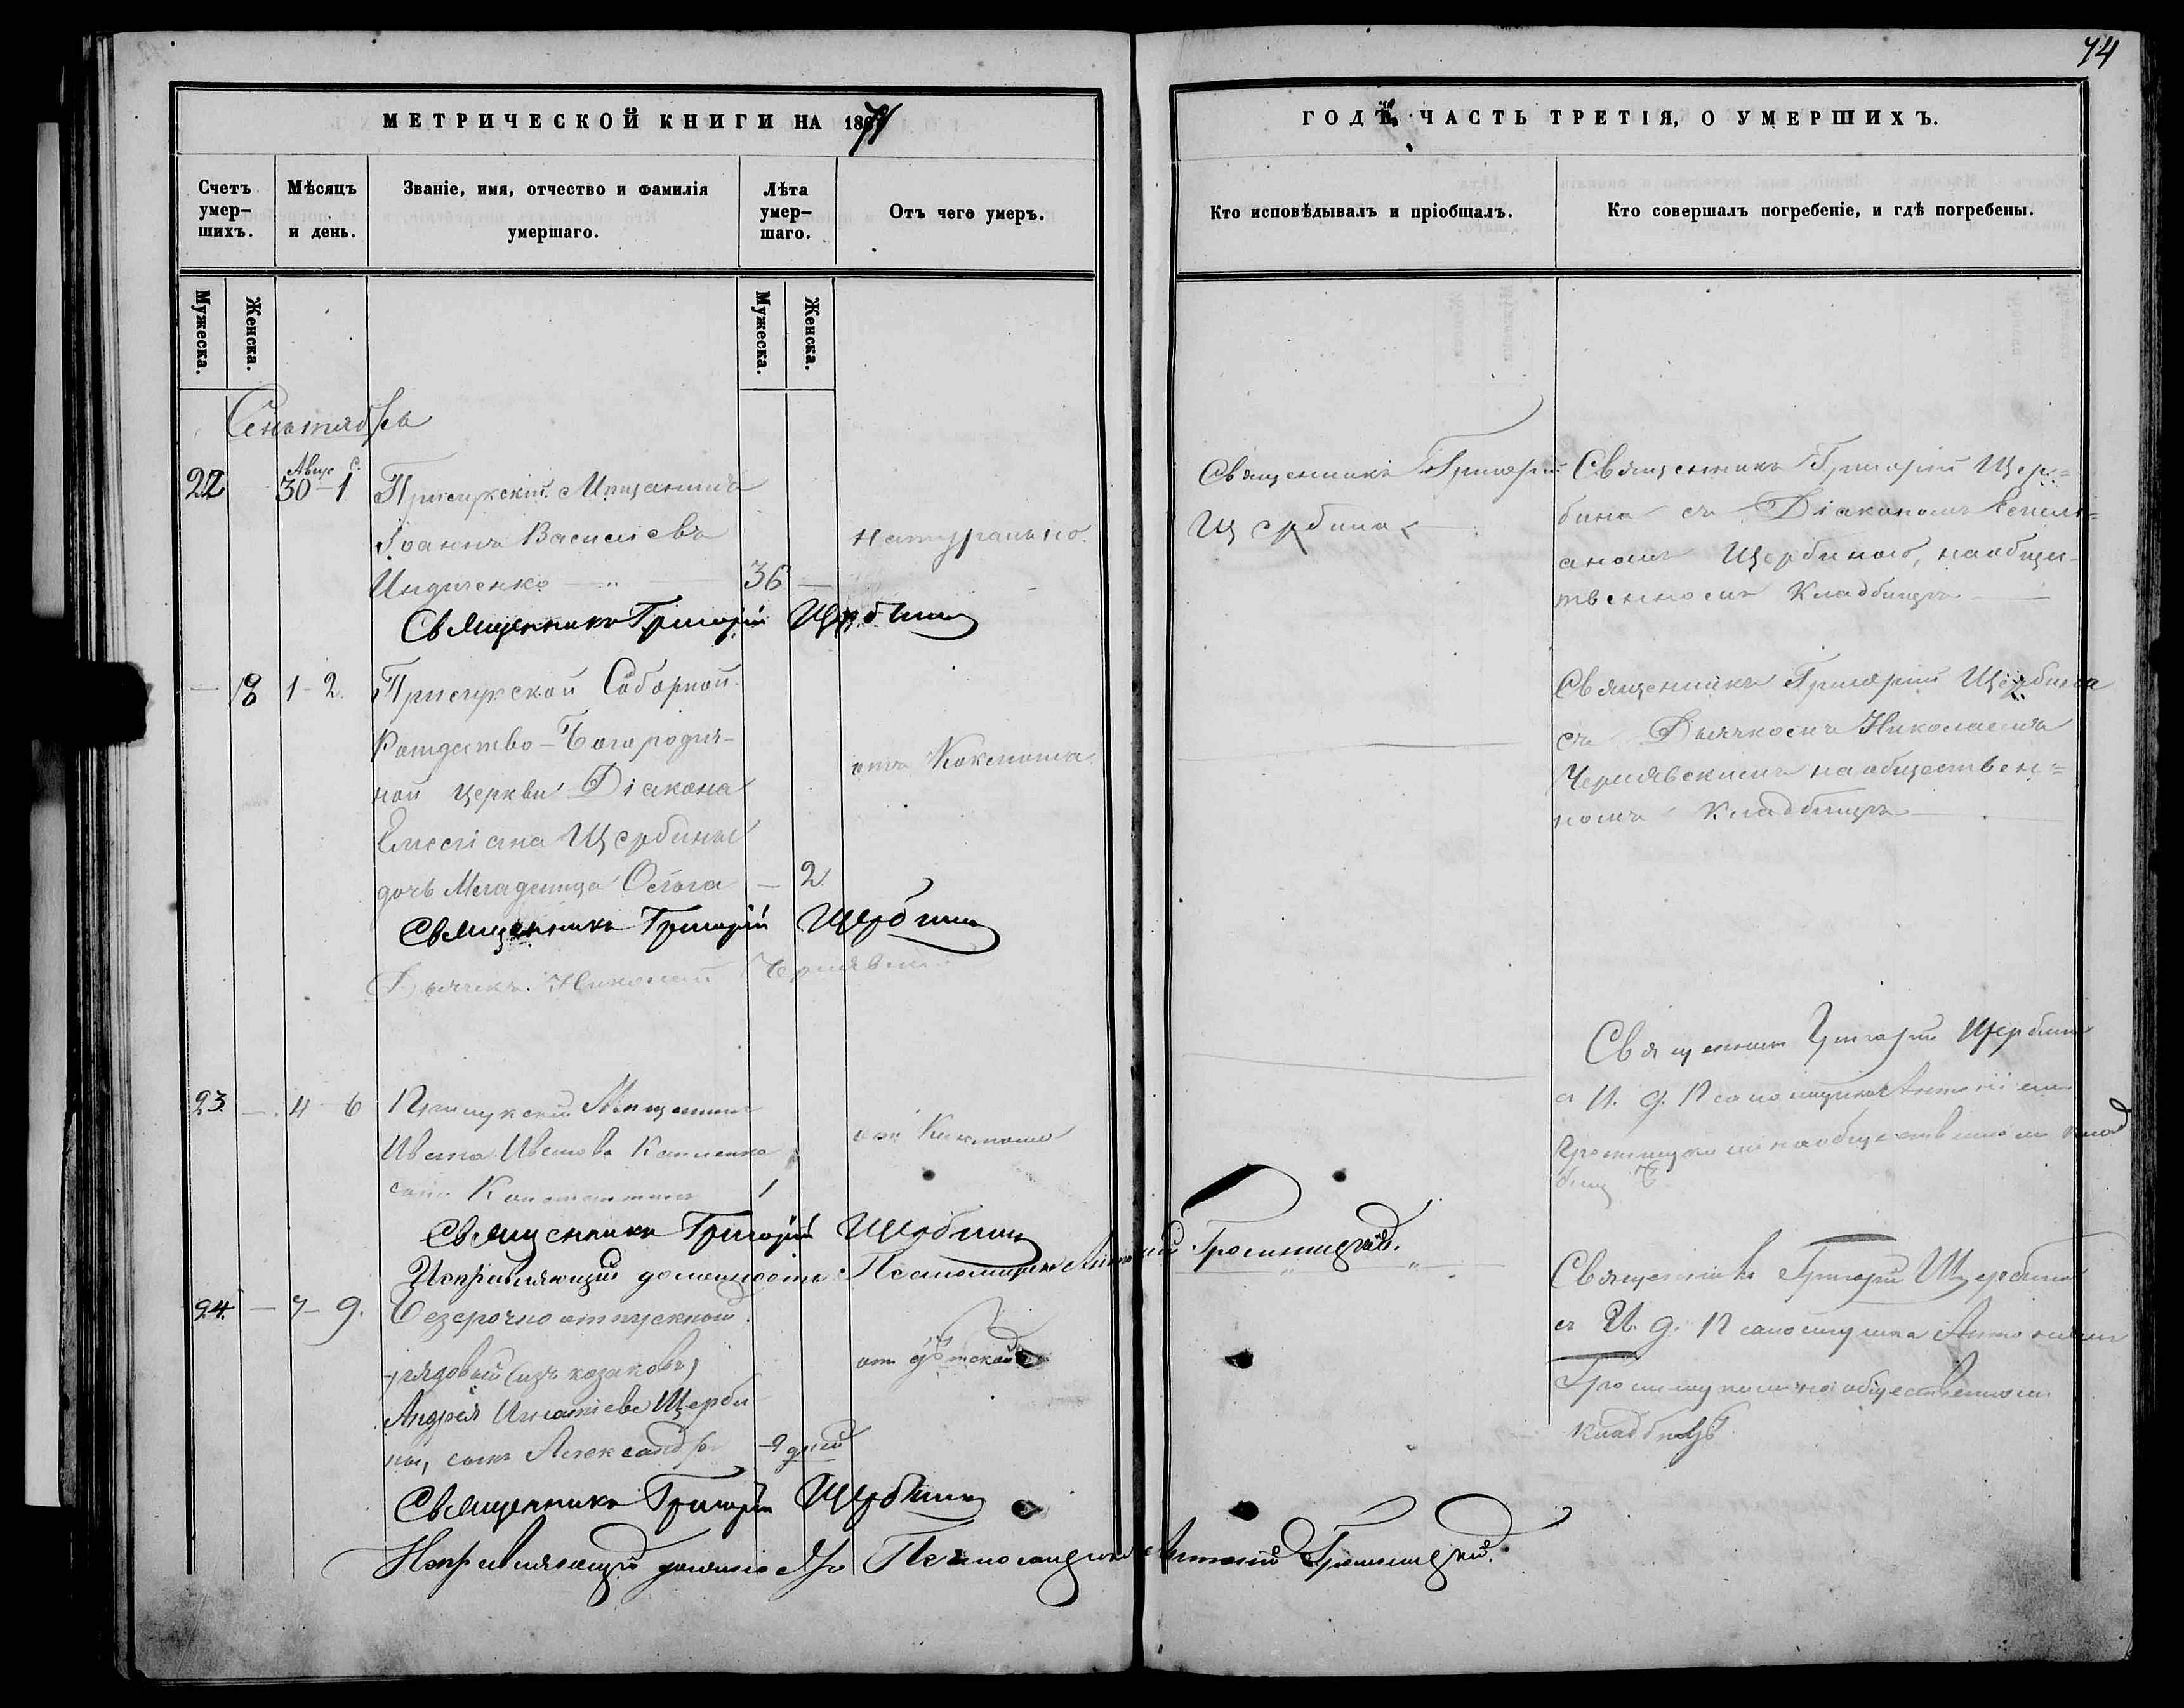 74
МЕТРИЧЕСКОЙ КНИГИ НА 1871
ГОДЪ. ЧАСТЬ ТРЕТІЯ, О УМЕРШИХЪ.
Счетъ умер-шихъ.
Мѣсяцъ и день.
Званіе, имя, отчество и фамилія умершаго.
Лѣта умер-шаго.
Отъ чего умеръ.
Кто исповѣдывалъ и пріобщалъ.
Кто совершалъ погребеніе, и гдѣ погребены.
Мужеска.
Женска.
Мужеска.
Женска.
Сентября
22
Авгус С.
30 - 1
Прилукскій Мѣщанинъ
Іоаннъ Василіевъ
Индиченко
36
натурально.
Священникъ Григорій
Щербина
Священникъ Григорій Щер=
бина съ Діакономъ Емили=
аномъ Щербиною, на общес-
твенномъ Кладбищѣ
Священникъ Григорій Щербина
18
1 - 2.
Прилукской Соборной
Рождество-Богородич-
ной церкви Діакона
Емеліана Щербины
дочь Младенца Ольга
2
отъ Коклюша.
Священникъ Григорій Щербина
съ Дьячкомъ Николаемъ
Чернявскимъ на обществен=
номъ Кладбищѣ
Священникъ Григорій Щербина
Дьячекъ Николай Чернявскій
23.
4 - 6
Прилукскій Мѣщанинъ
Ивана Иванова
сынъ Константинъ
1
отъ Коклюша
Священникъ Григорій Щербина
съ И. д. Псаломщика Антоніемъ
на общественномъ клад
бищѣ
Священникъ Григорій Щербина
Исправляющій должность Псаломщика Антоній
24.
7 - 9.
Безсрочно отпускной
рядовый (изъ козаковъ)
Андрея Игнатіева Щерби
ны, сынъ Александръ
9 дней
отъ дѣтской
Священникъ Григорій Щербина
съ И. д. Псаломщика Антоніемъ
на общественномъ
кладбищѣ
Священникъ Григорій Щербина
Исправляющій должность Псаломщика Антоній